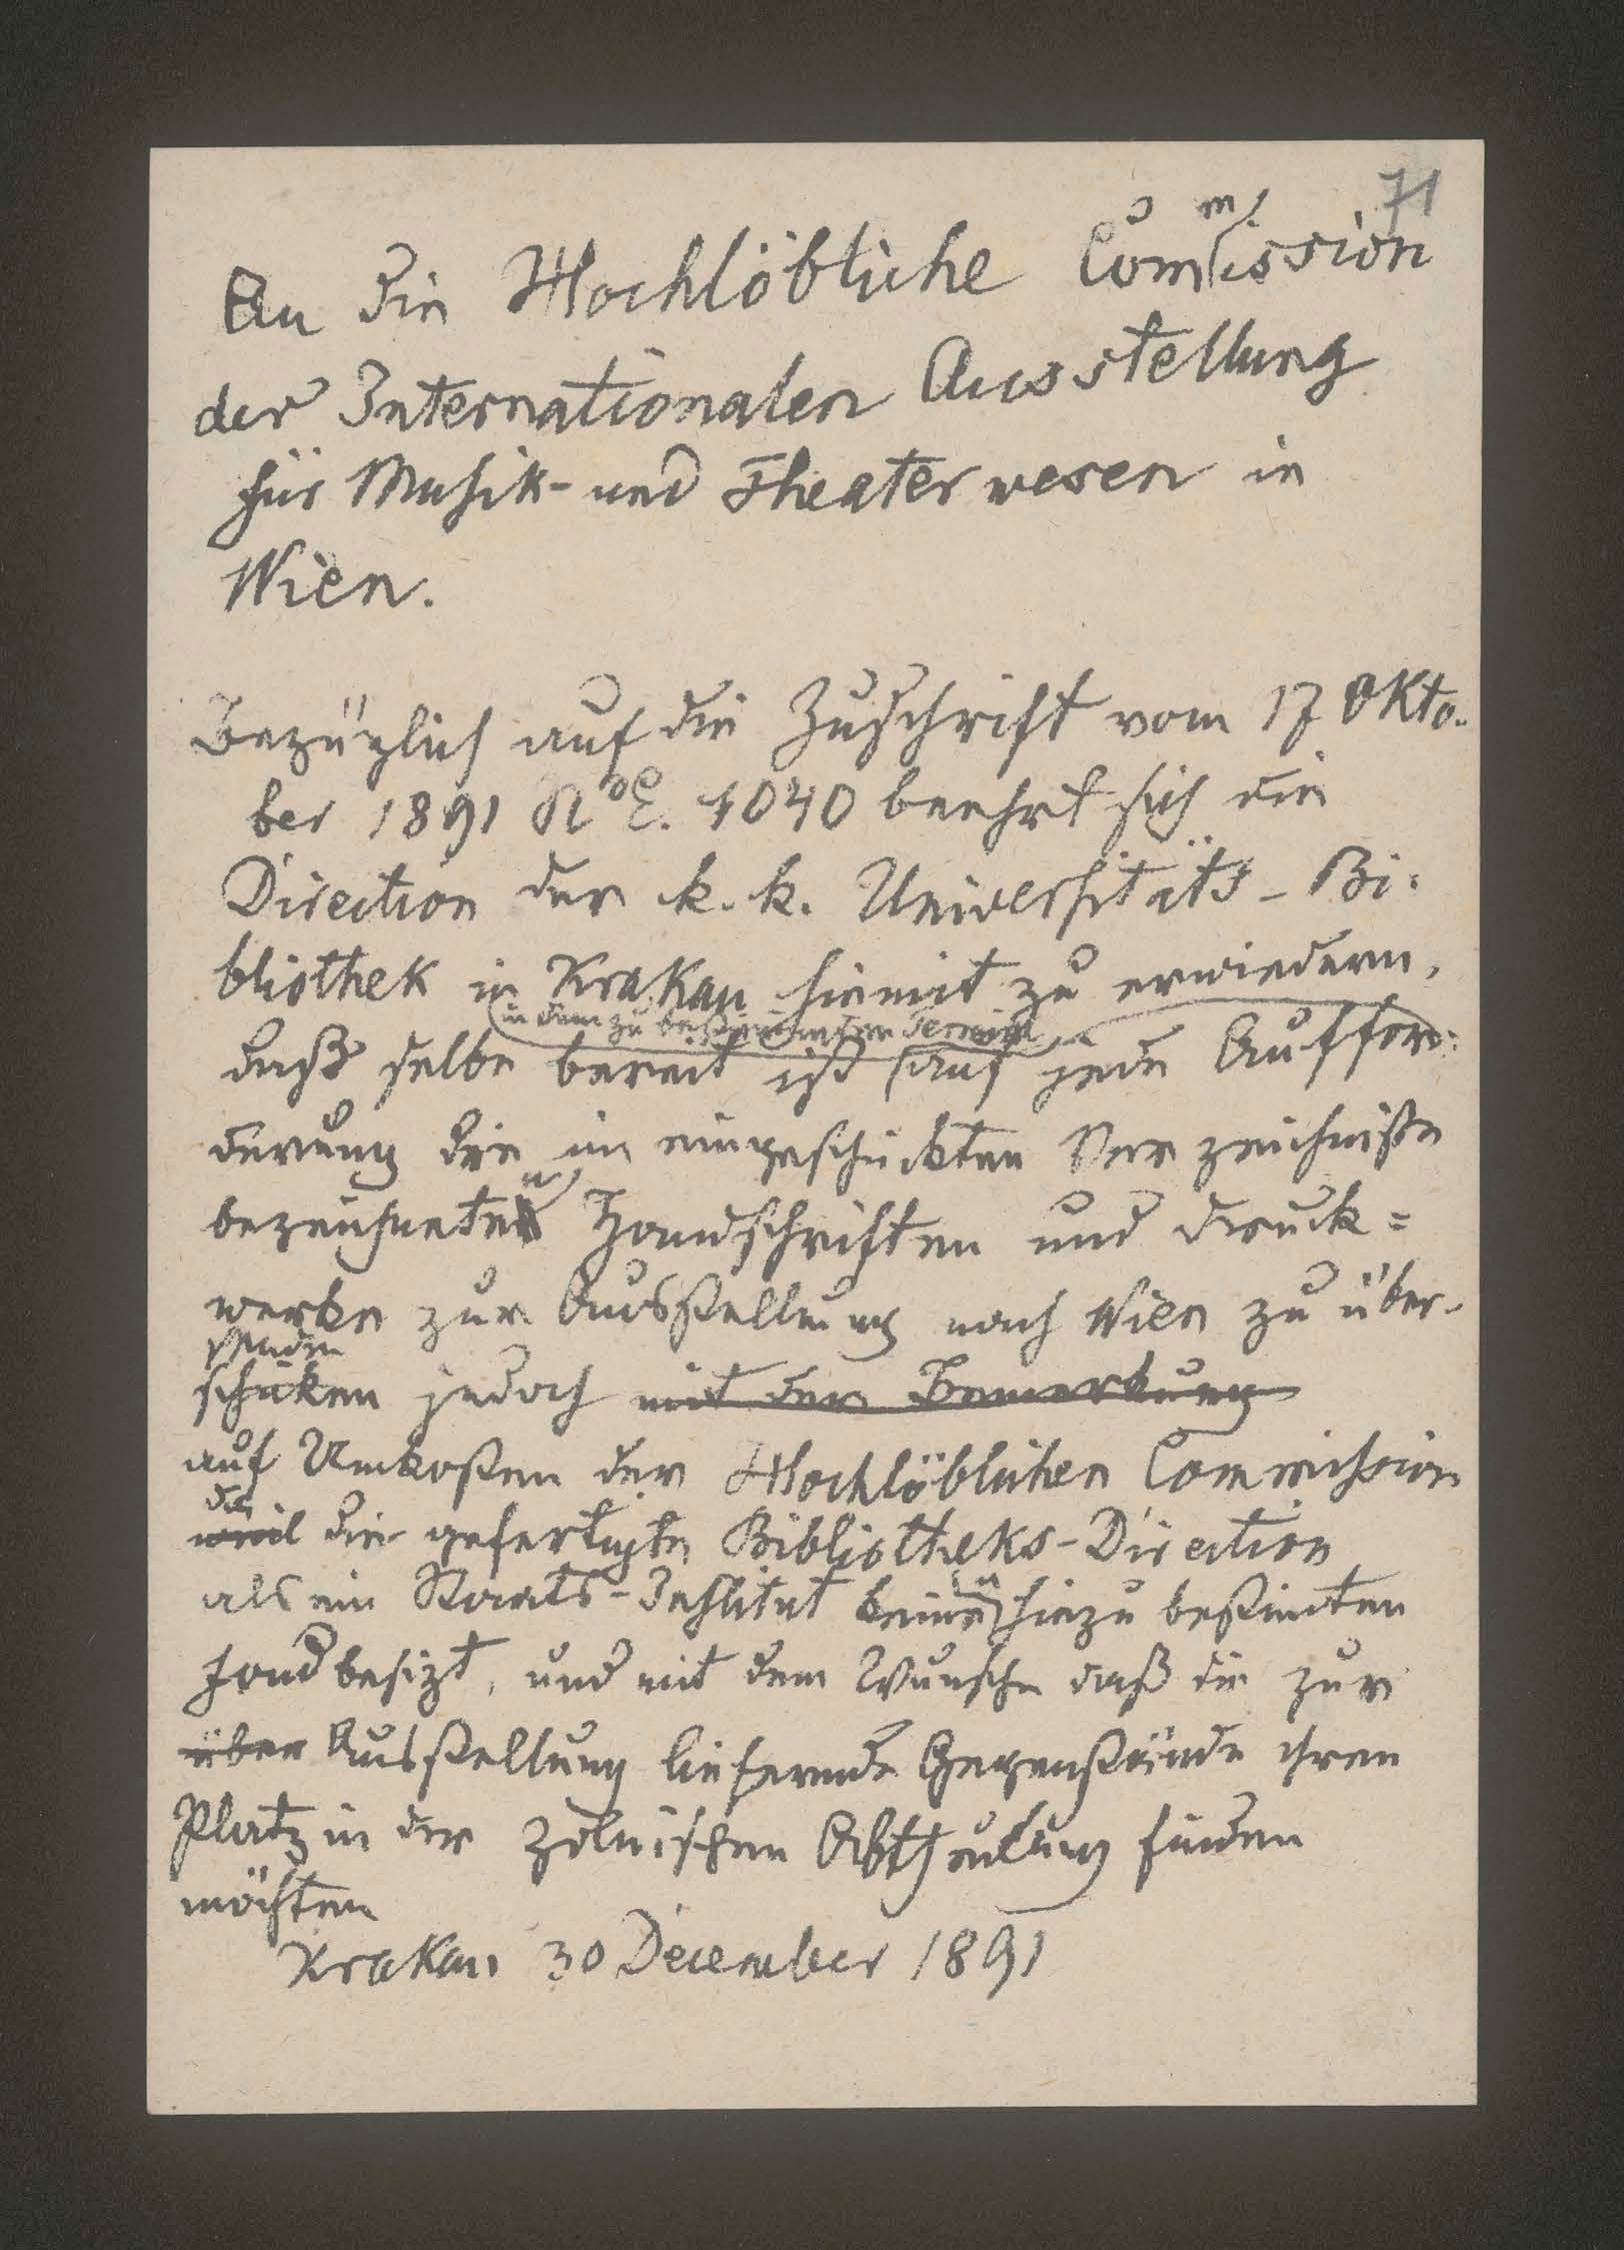 71
An die Hochlöbliche Commission
der Internationalen Ausstellung
für Musik- und Theaterwesen in
Wien.
Bezüglich auf die Zuschrift vom 17 Okto-
ber 1891 No E. 1040 beehrt sich die
Direction der k. k. Universitäts-Bi-
bliothek in Krakau hiemit zu erwiedern,
in dem zu bestimmten Termin
daß selbe bereit ist auf jede Auffor-
derung die im eingeschickten Verzeichniße
bezeichneten Handschriften und Druck=
werke zur Ausstellung nach Wien zu über-
senden
schicken jedoch mit der Bemerkung
auf Unkosten der Hochlöblichen Commission
da
weil die gefertigte Bibliotheks-Direction
als ein Staats-Institut keinen hiezu bestimten
Fond besizt, und mit dem Wunsche daß die zur
über Ausstellung liefernde Gegenstände ihren
Platz in der polnischen Abtheilung finden
möchten
Krakau 30 December 1891